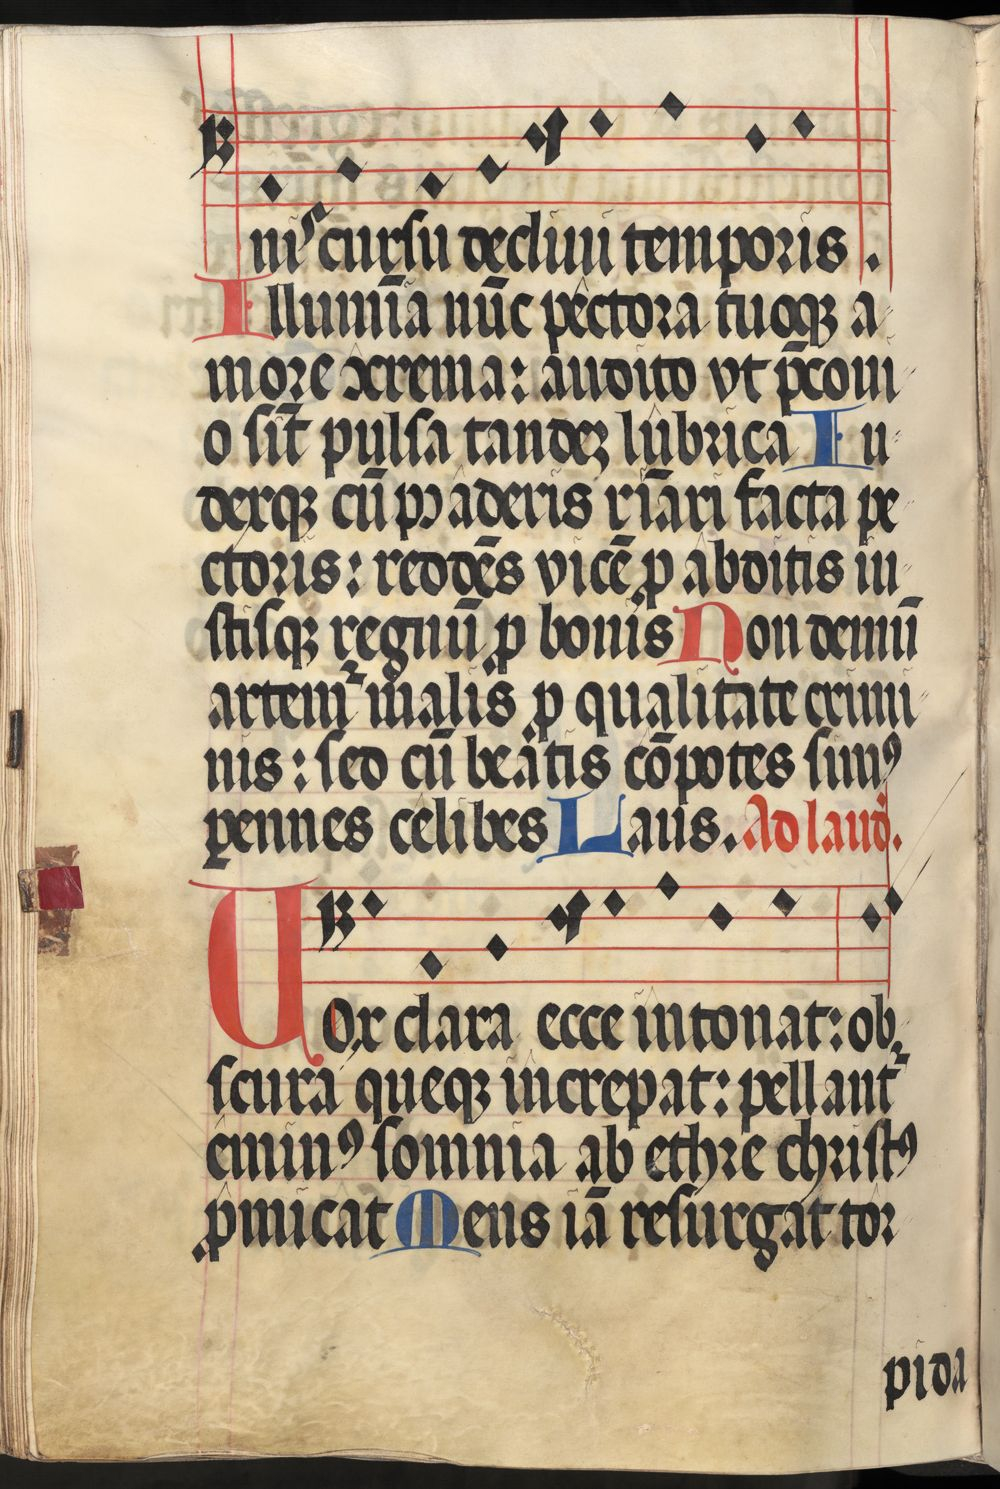 niˢ cursu decliui temporis .
Illumīa nūc pectora tuoqꝫ a
more cxrema : audito vt p̄coni
o sīt pulsa tandeꝫ lubrica Iu
dexqꝫ cū pꝰ aderis rīari facta pe
ctoris : reddēs vicē ꝓ abditis iu
stisqꝫ regnū ꝓ bonis Non demū
artemur malis ꝓ qualitate crimi
nis : sed cū beatis cōpotes simꝰ
ꝑennes celibes Laus . Ad laud .
Uox clara ecce intonat : ob
scura queqꝫ increpat : pellant᷑
eminꝰ somnia ab ethre christꝰ
ꝓmicat Mens iā resurgat tor
pida